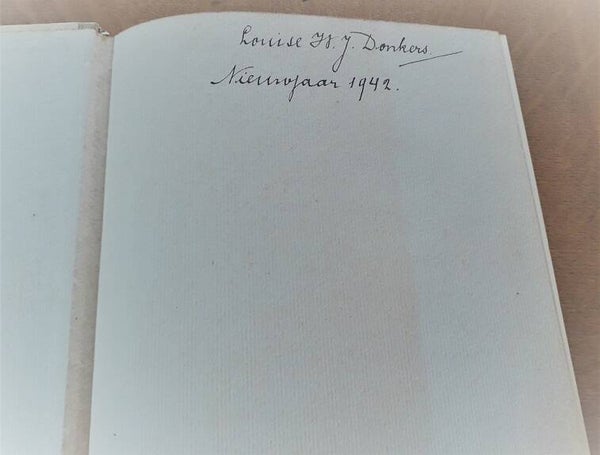 Louise H. J. Donkers.
Nieuwjaar 1942.